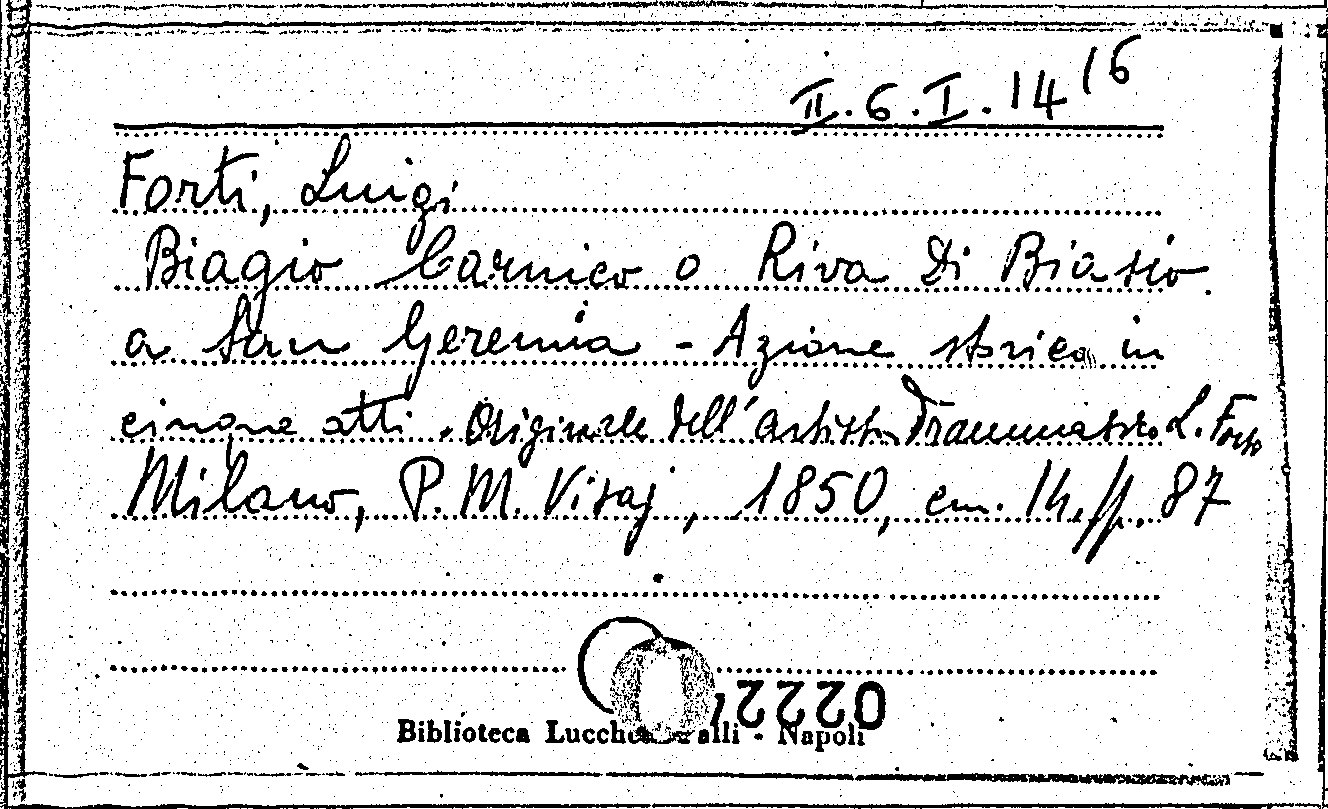 II.6.I.14 16
Forti, Luigi
Biagio Carnico o Riva Di Biasio
a San Geremia - Azione storica in
cinque atti. Originale dell'artista Drammatico L. Forti
Milano, P. M. Visaj, 1850, cm. 14. pp. 87
0222
Biblioteca Napoli